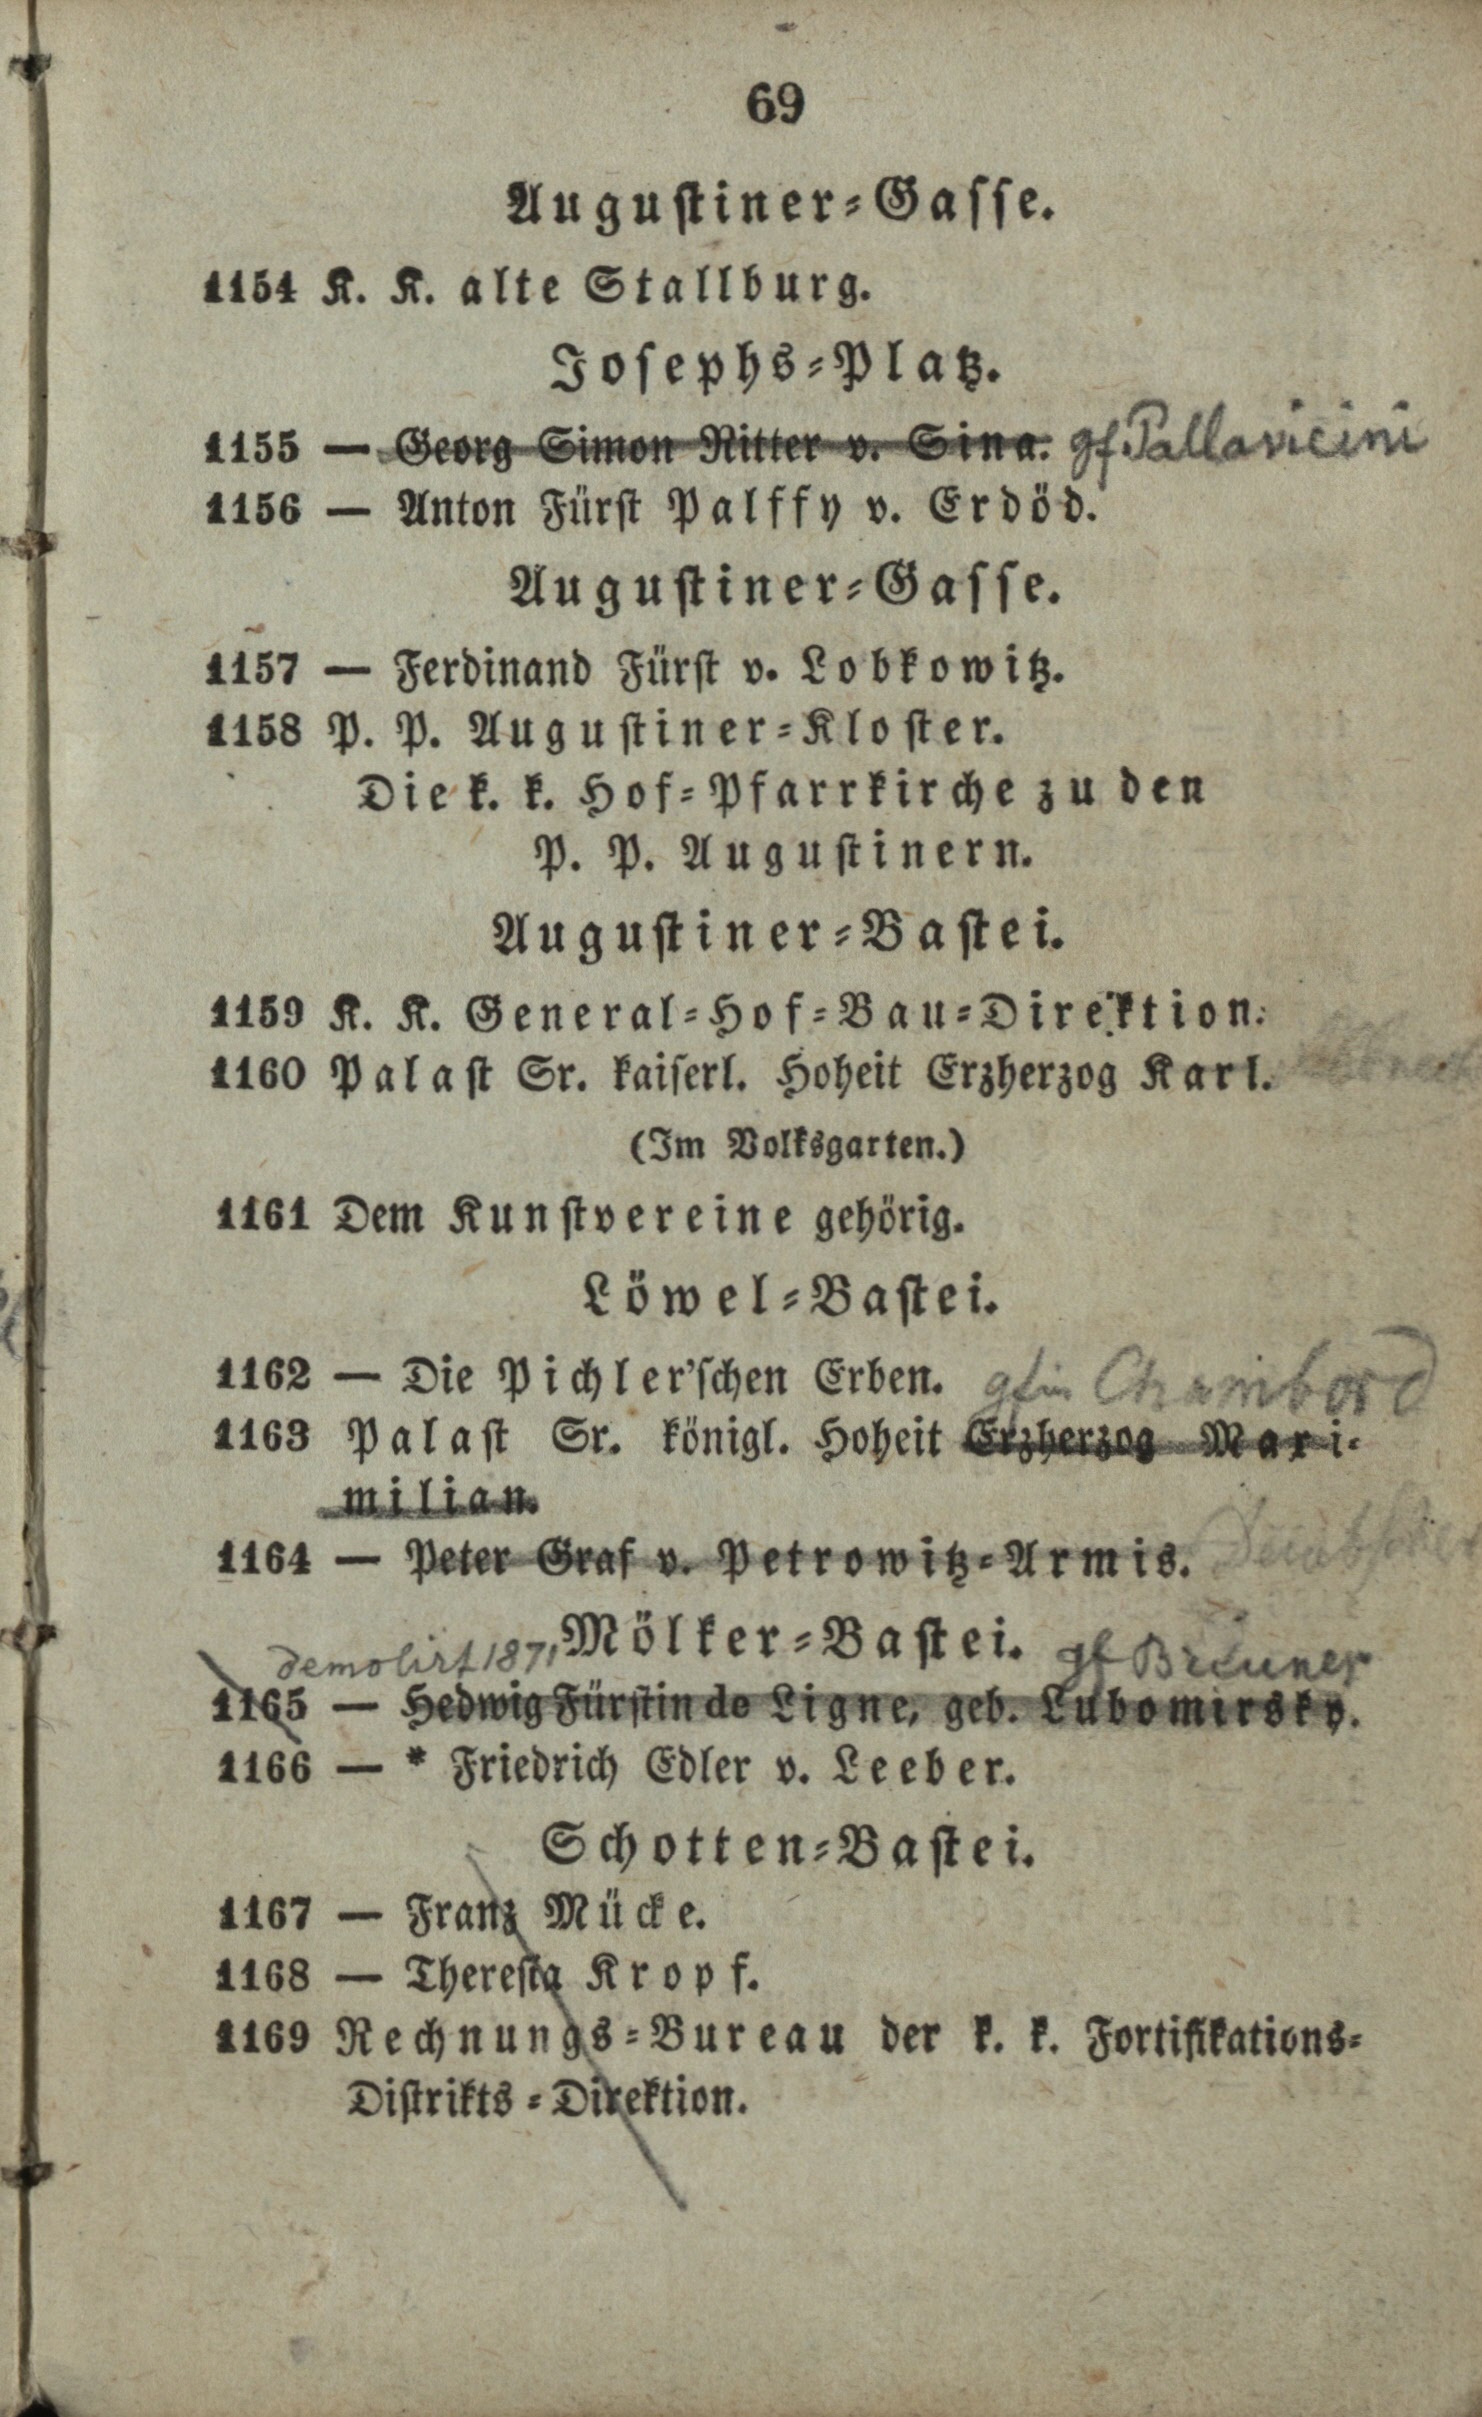 69
Augustiner-Gasse.
1154 K. K. alte Stallburg.
Josephs-Platz.
1155 — Georg Simon Ritter v. Sina. gf Pallavicini
1156 — Anton Fürst Palffy v. Erdöd.
Augustiner-Gasse.
1157 — Ferdinand Fürst v. Lobkowitz.
1158 P. P. Augustiner-Kloster.
Die k. k. Hof-Pfarrkirche zu den
P. P. Augustinern.
Augustiner-Bastei.
1159 K. K. General-Hof-Bau-Direktion.
1160 Palast Sr. kaiserl. Hoheit Erzherzog Karl.
(Im Volksgarten.)
1161 Dem Kunstvereine gehörig.
Löwel-Bastei.
1162 — Die Pichler'schen Erben. gfin Chambord
1163 Palast Sr. königl. Hoheit Erzherzog Maxi-
milian.
1164 — Peter Graf v. Petrowitz-Armis.
Mölker-Bastei.
demolirt 1871 gf Breuner
1165 — Hedwig Fürstin de Ligne, geb. Lubomirsky.
1166 — * Friedrich Edler v. Leeber.
Schotten-Bastei.
1167 — Franz Mücke.
1168 — Theresia Kropf.
1169 Rechnungs-Bureau der k. k. Fortifikations-
Distrikts-Direktion.